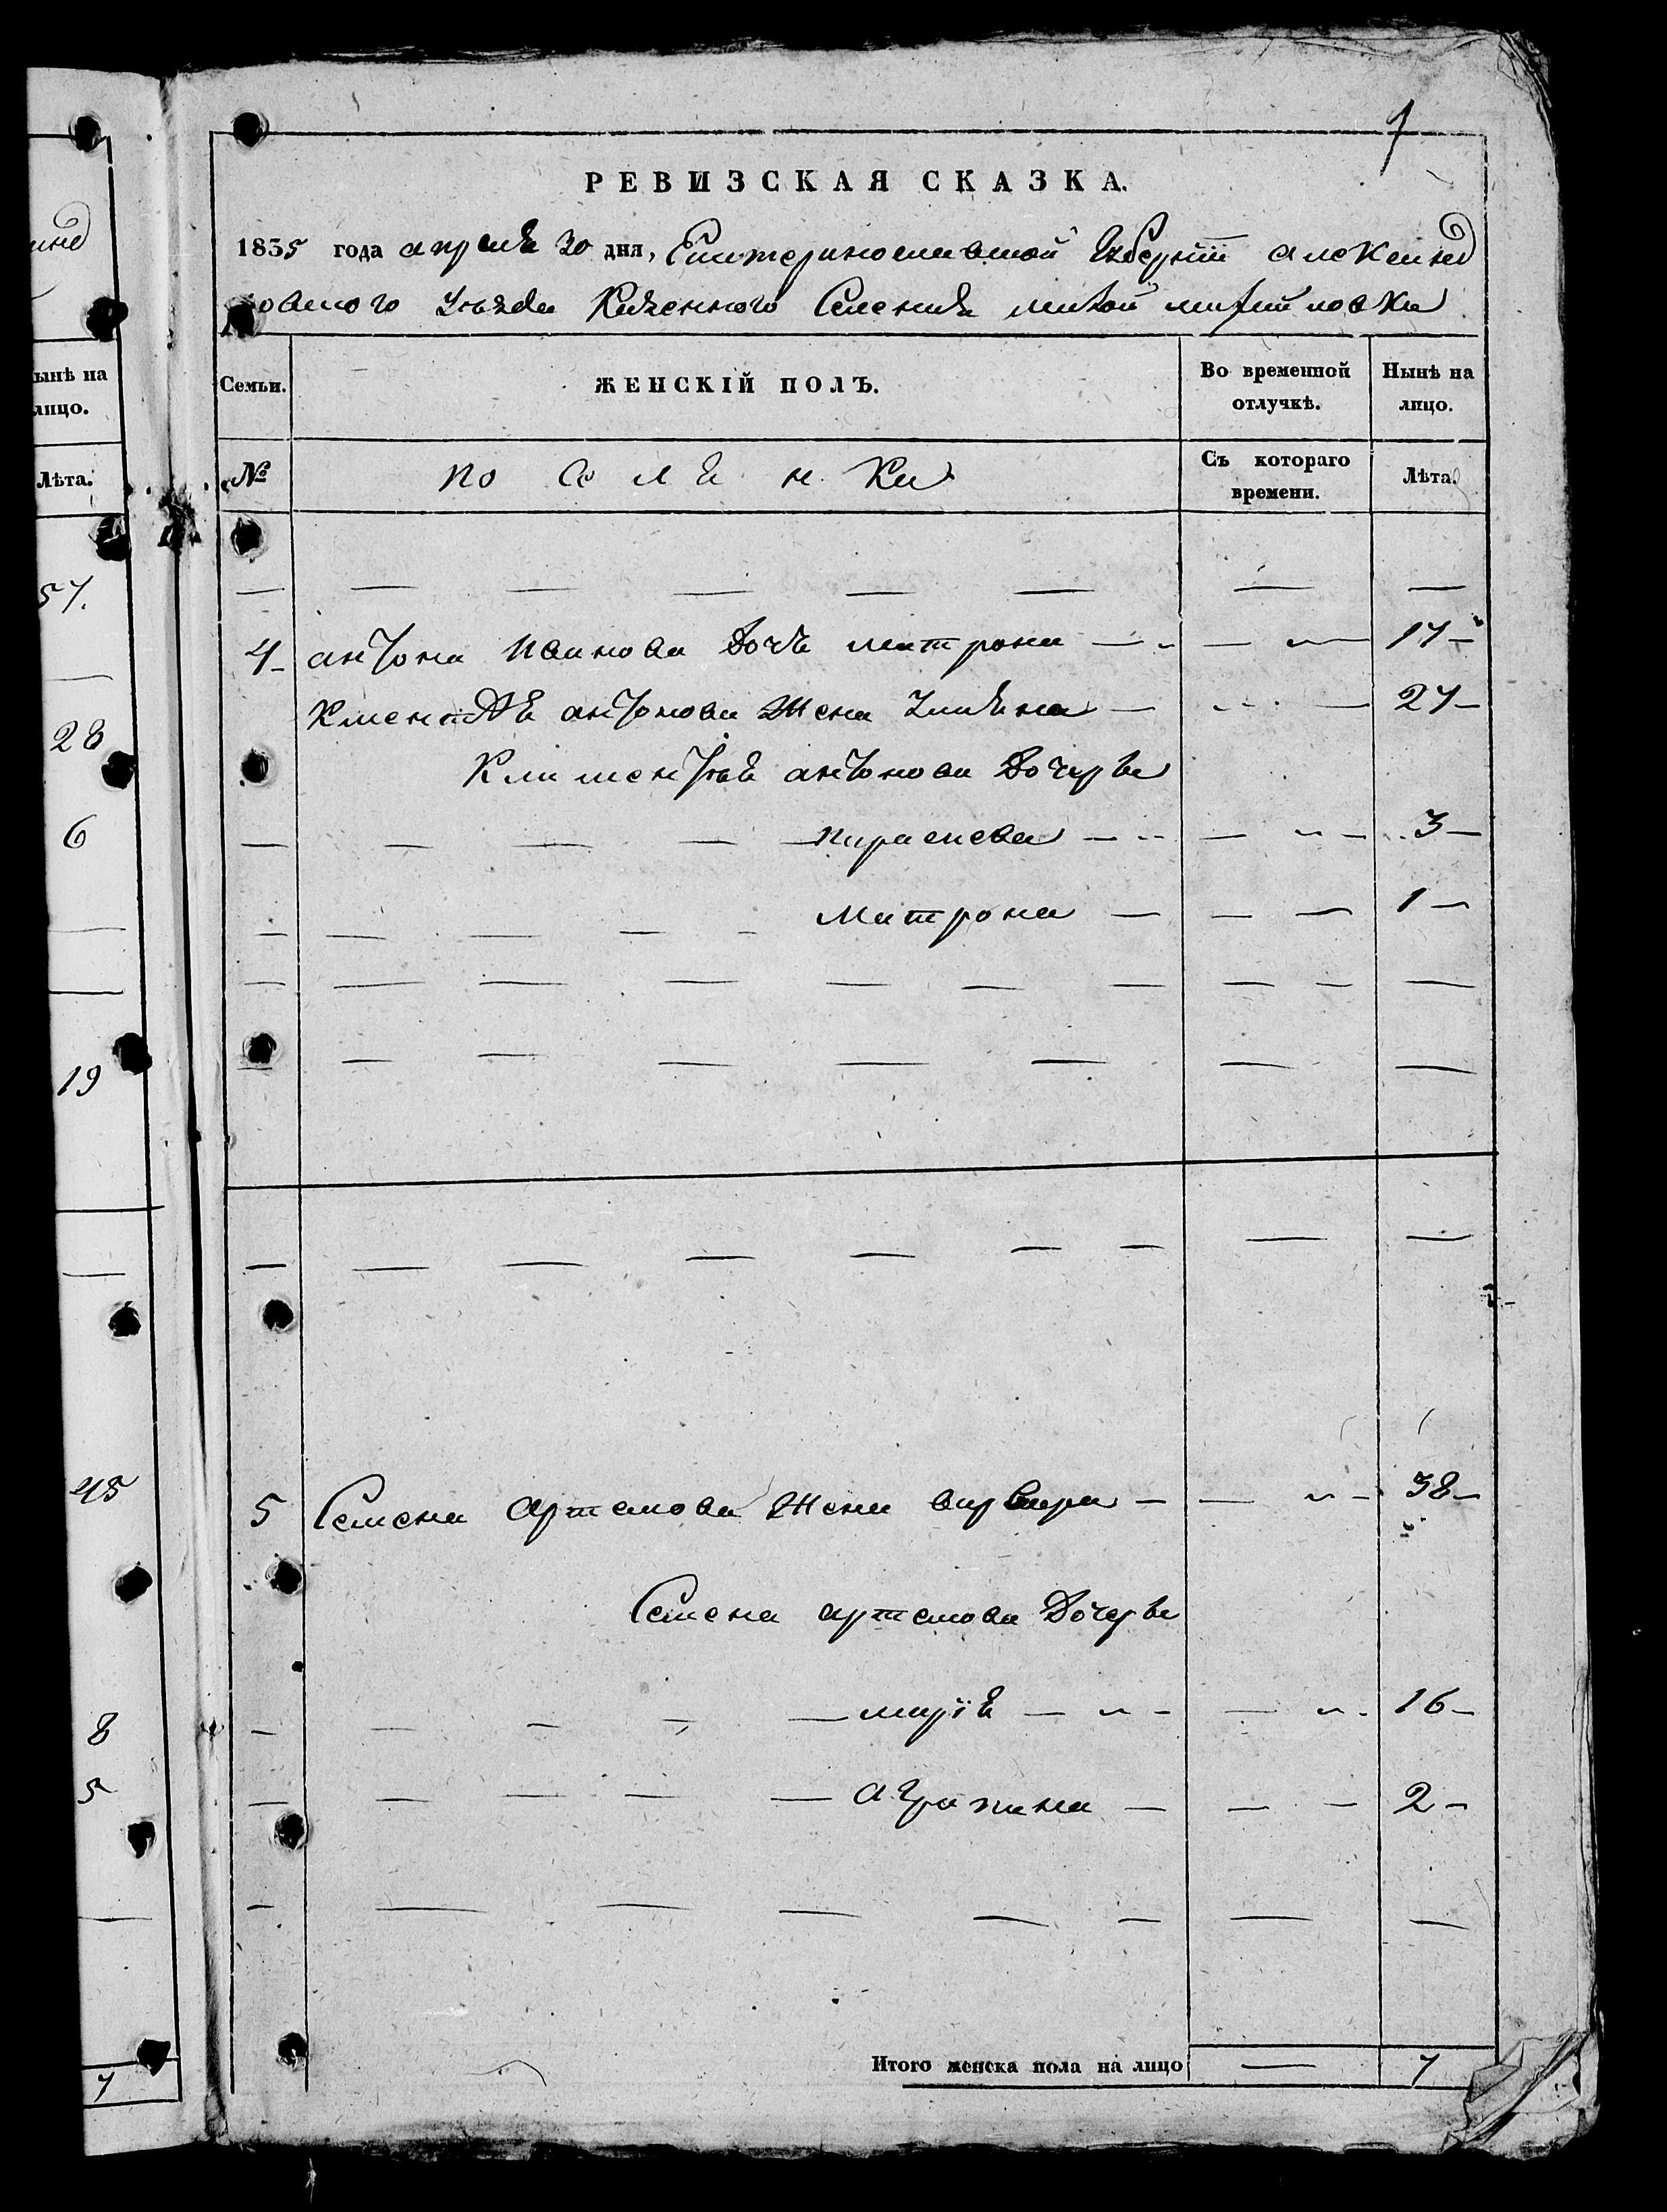 7
РЕВИЗСКАЯ СКАЗКА.
1835 года апреля 30 дня, Екатеринославской Губернии Александ
ровского уезда Казенного Селения малой михайловки
инд
ынѣ на
лицо.
Лѣта.
57.
28
6
19
45
8
5
7
Семьи.
ЖЕНСКІЙ ПОЛЪ.
Во временной
отлучкѣ.
Нынѣ на
лицо.
№
по се ля н ки
Съ котораго
времени.
Лѣта.
4 антона Иванова Дочь матрона 17
антонова Жена Ульяна 27
Климентья антонова Дочерья
параскева 3
Матрона 1
5 Семена Артемова Жена варвара 38
Семена артемова Дочерья
марія 16
агрипина 2
Итого женска пола на лицо 7